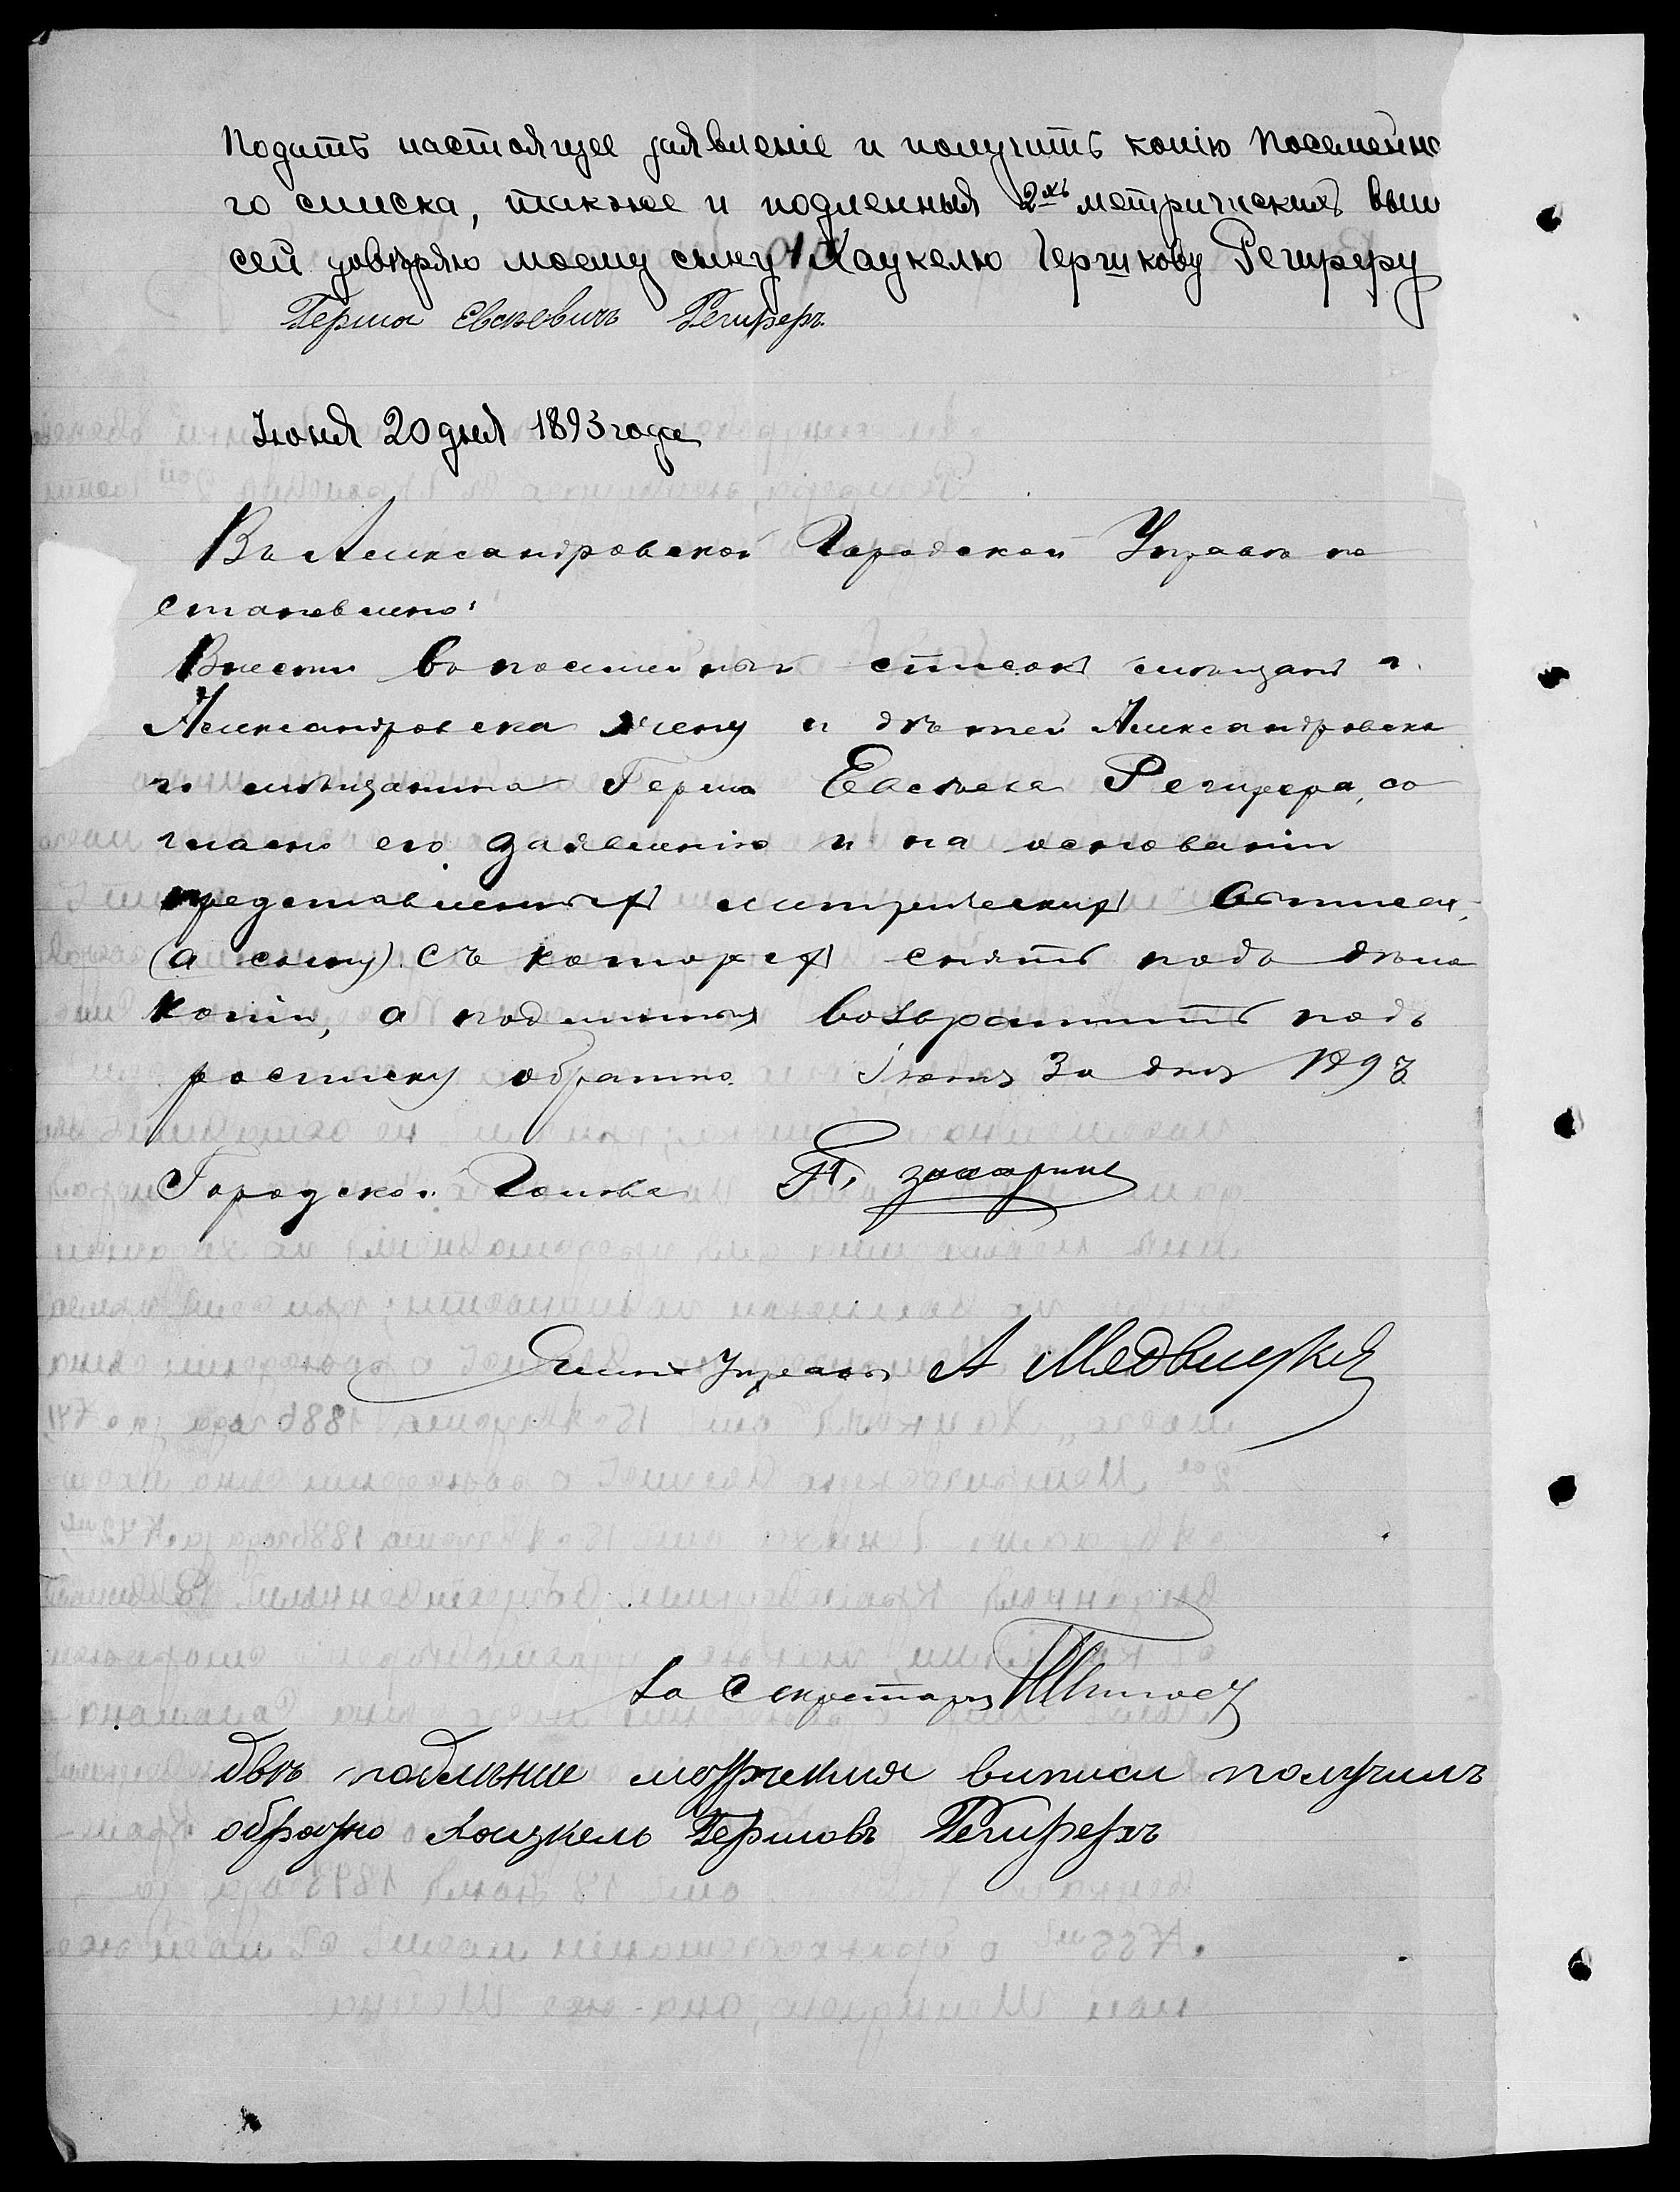 Подать настоящее заявленіе и получить копію посемейно
го списка, также и подленныя 2хъ метрическихъ выпи
сей довѣряю моему сыну Хацкелю Гершкову Региреру
Герша Евсѣевичъ Региреръ
Іюня 20 дня 1893 года
Въ Александровской Городской Управѣ по
становлено:
Внести въ посемейный списокъ мѣщанъ г.
Александровска жену и дѣтей Александровска
го мѣщанина Герша Евсѣева Регирера, со
гласно его заявленію и на основаніи
представленныхъ метрическихъ выписей,
съ которыхъ снять подъ дѣло
копіи, а подлинныя возвратить подъ
росписку обратно. Іюня 30 дня 1893
Городской Голова
Членъ Управы А
За Секретаря
двѣ подлѣные метрическия выписи получилъ
обратно Хацкель Гершовъ Региреръ